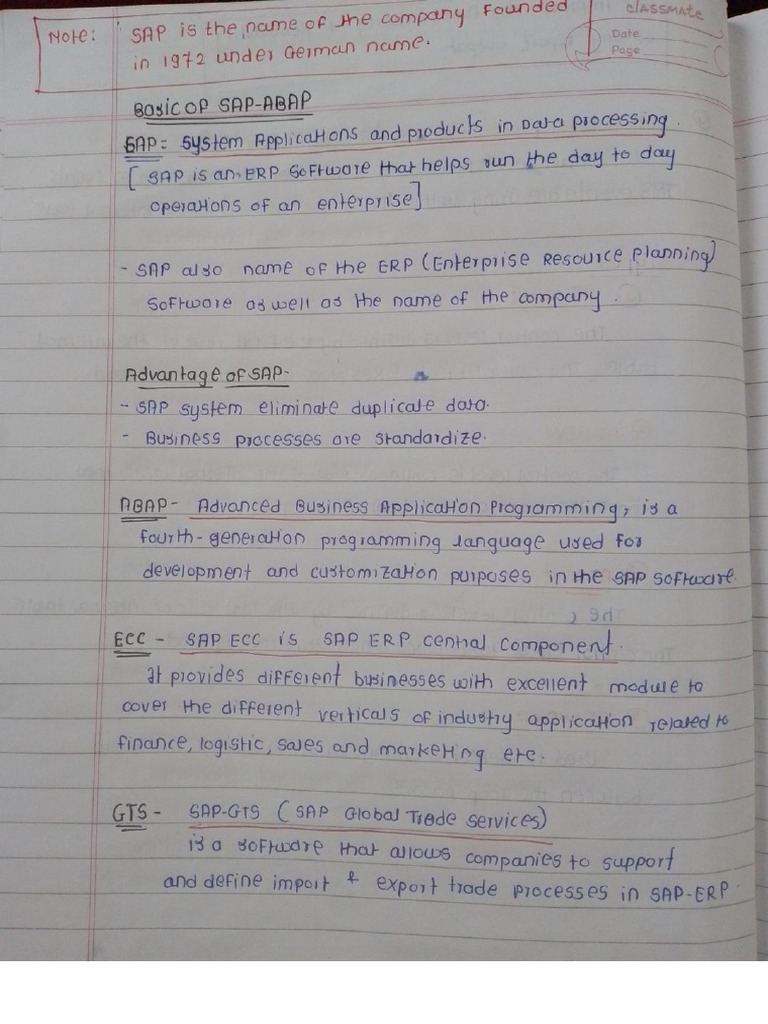 Note: SAP is the name of the company founded
in 1972 under German name.
CLASSMATE
Date
Page
Basic OF SAP-ABAP
SAP = System Applications and products in Data processing.
[ SAP is an ERP software that helps run the day to day
operations of an enterprise]
- SAP also name of the ERP (Enterprise Resource planning)
software as well as the name of the company.
Advantage of SAP-
- SAP system eliminate duplicate data.
- Business processes are standardize.
ABAP - Advanced Business Application Programming, is a
fourth-generation programming language used for
development and customization purposes in the SAP software.
ECC - SAP ECC is SAP ERP central component.
It provides different businesses with excellent module to
cover the different verticals of industry application related to
finance, logistic, sales and marketing etc.
GTS - SAP-GTS ( SAP Global Trade services)
is a software that allows companies to support
and define import & export trade processes in SAP-ERP.